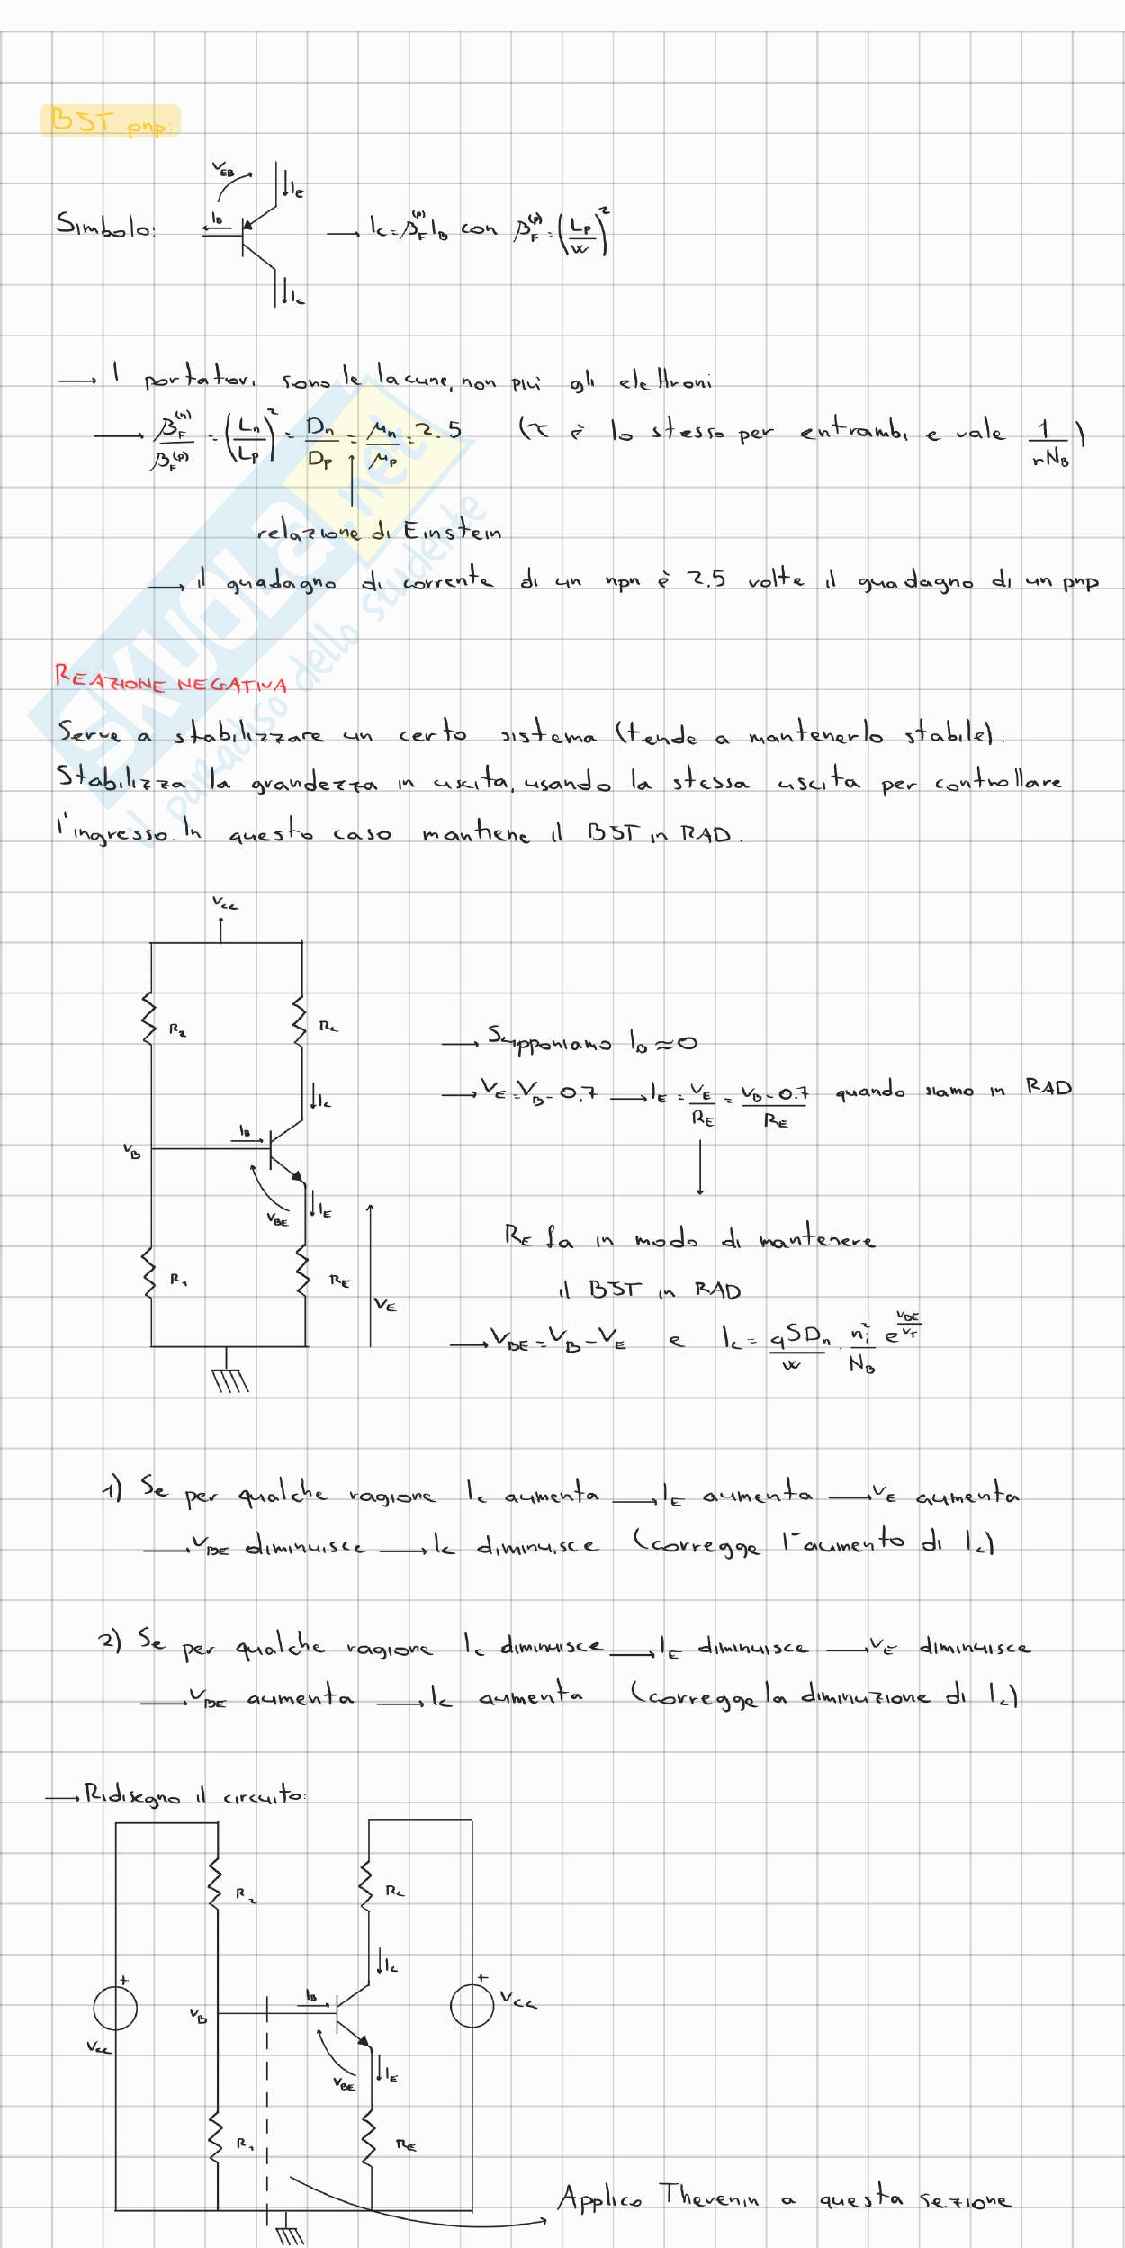 BJT pnp:
V_EB
I_E
Simbolo:
I_B
→ I_C = β_F^(p) I_B con β_F^(p) = (L_p/W)²
I_C
→ I portatori sono le lacune, non più gli elettroni
→ β_F^(n)/β_F^(p) = (L_n/L_p)² = D_n/D_p = μ_n/μ_p = 2.5 (τ è lo stesso per entrambi e vale 1/rN_B)
relazione di Einstein
→ il guadagno di corrente di un npn è 2.5 volte il guadagno di un pnp
SKUOLA.net
il paradiso dello studente
REAZIONE NEGATIVA
Serve a stabilizzare un certo sistema (tende a mantenerlo stabile).
Stabilizza la grandezza in uscita, usando la stessa uscita per controllare
l'ingresso. In questo caso mantiene il BJT in RAD.
V_CC
R_2
R_C
→ Supponiamo I_B ≈ 0
I_C
→ V_E = V_B - 0.7 → I_E = V_E/R_E = (V_B - 0.7)/R_E quando siamo in RAD
I_B
V_B
V_BE
I_E
R_E fa in modo di mantenere
il BJT in RAD
R_1
R_E
V_E
→ V_BE = V_B - V_E e I_C = qSD_n/W · n_i²/N_B e^(V_BE/V_T)
1) Se per qualche ragione I_C aumenta → I_E aumenta → V_E aumenta
→ V_BE diminuisce → I_C diminuisce (corregge l'aumento di I_C)
2) Se per qualche ragione I_C diminuisce → I_E diminuisce → V_E diminuisce
→ V_BE aumenta → I_C aumenta (corregge la diminuzione di I_C)
→ Ridisegno il circuito:
R_2
R_C
I_C
+
+
I_B
V_CC
V_B
V_CC
V_BE
I_E
R_1
R_E
Applico Thevenin a questa sezione